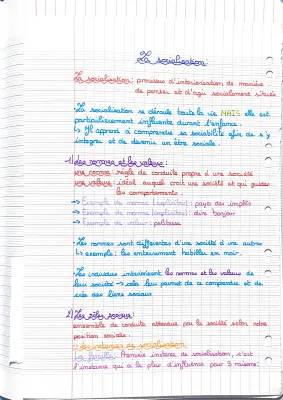 La socialisation
La socialisation : processus d'interiorisation de manière
de penser et d'agir socialement située
• La socialisation se déroule toute la vie MAIS elle est
particulièrement influente durant l'enfance.
↳ Il apprend a comprendre sa sociabilité afin de s'y
integrer et de devenir un être sociale.
1) Les normes et les valeurs :
une norme : règle de conduite propre d'une société
une valeur : idéal auquel croit une société et qui guider
les comportements.
→ Exemple de norme (explicites) : payer des impôts
→ Exemple de norme (implicites) : dire bonjour
→ Exemple de valeur : politesse
• Les normes sont différentes d'une société d'une autre
↳ exemple : les enterrement habiller en noir.
• Les individus interiorisent les normes et les valeurs de
leur société → cela leur permet de se comprendre et de
créé des liens sociaux
2) Les rôles sociaux :
ensemble de conduite attendues par la société selon notre
position sociale.
2) Les instances de socialisation
La famille : Première instance de socialisation, c'est
l'instance qui a le plus d'influence pour 3 raisons :